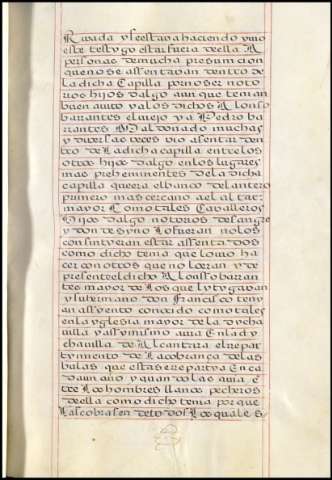 Rivada y se estava haciendo y vio
este testygo estar fuera de ella A
personas de mucha presuncion
que no se assentavan dentro de
la dicha Capilla por no ser noto
rros hijos dalgo aunque tenian
buen avito y a los dichos Alonso
barrantes el viejo y a Pedro ba
rrantes Maldonado muchas
y diversas veces vio assentar den
tro de La dicha capilla entre los
otros hijos dalgo en los lugares
mas preheminentes de la dicha
capilla que era el banco delantero
primero mas cercano ae al altar
mayor Como tales Cavalleros
Hijos dalgo notorios de sangre
y don de sy no Lo fueran no los
consintyeran estar assentados
como dicho tenia que lo vio ha
cer con otros que no lo eran y de
presente el dicho Alonsso barran
tes mayor de Los que lytygavan
y su hermano don Francisco teny
an assyento conocido como tales
en la yglesia mayor de la dycha
villa y assymismo avia En la dy
cha villa de Alcantara el repar
tymiento de La cobranca de las
bulas que estas se repartya En ca
da un año y quando las avia E
de Los hombres llanos pecheros
de ella como dicho tenia porque
Las cobrasen de todos Los quales